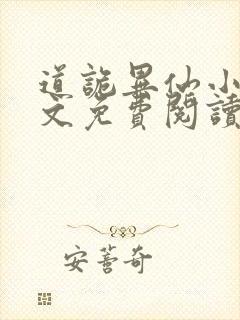 道詭異仙小
文免費閱讀
安薈奇